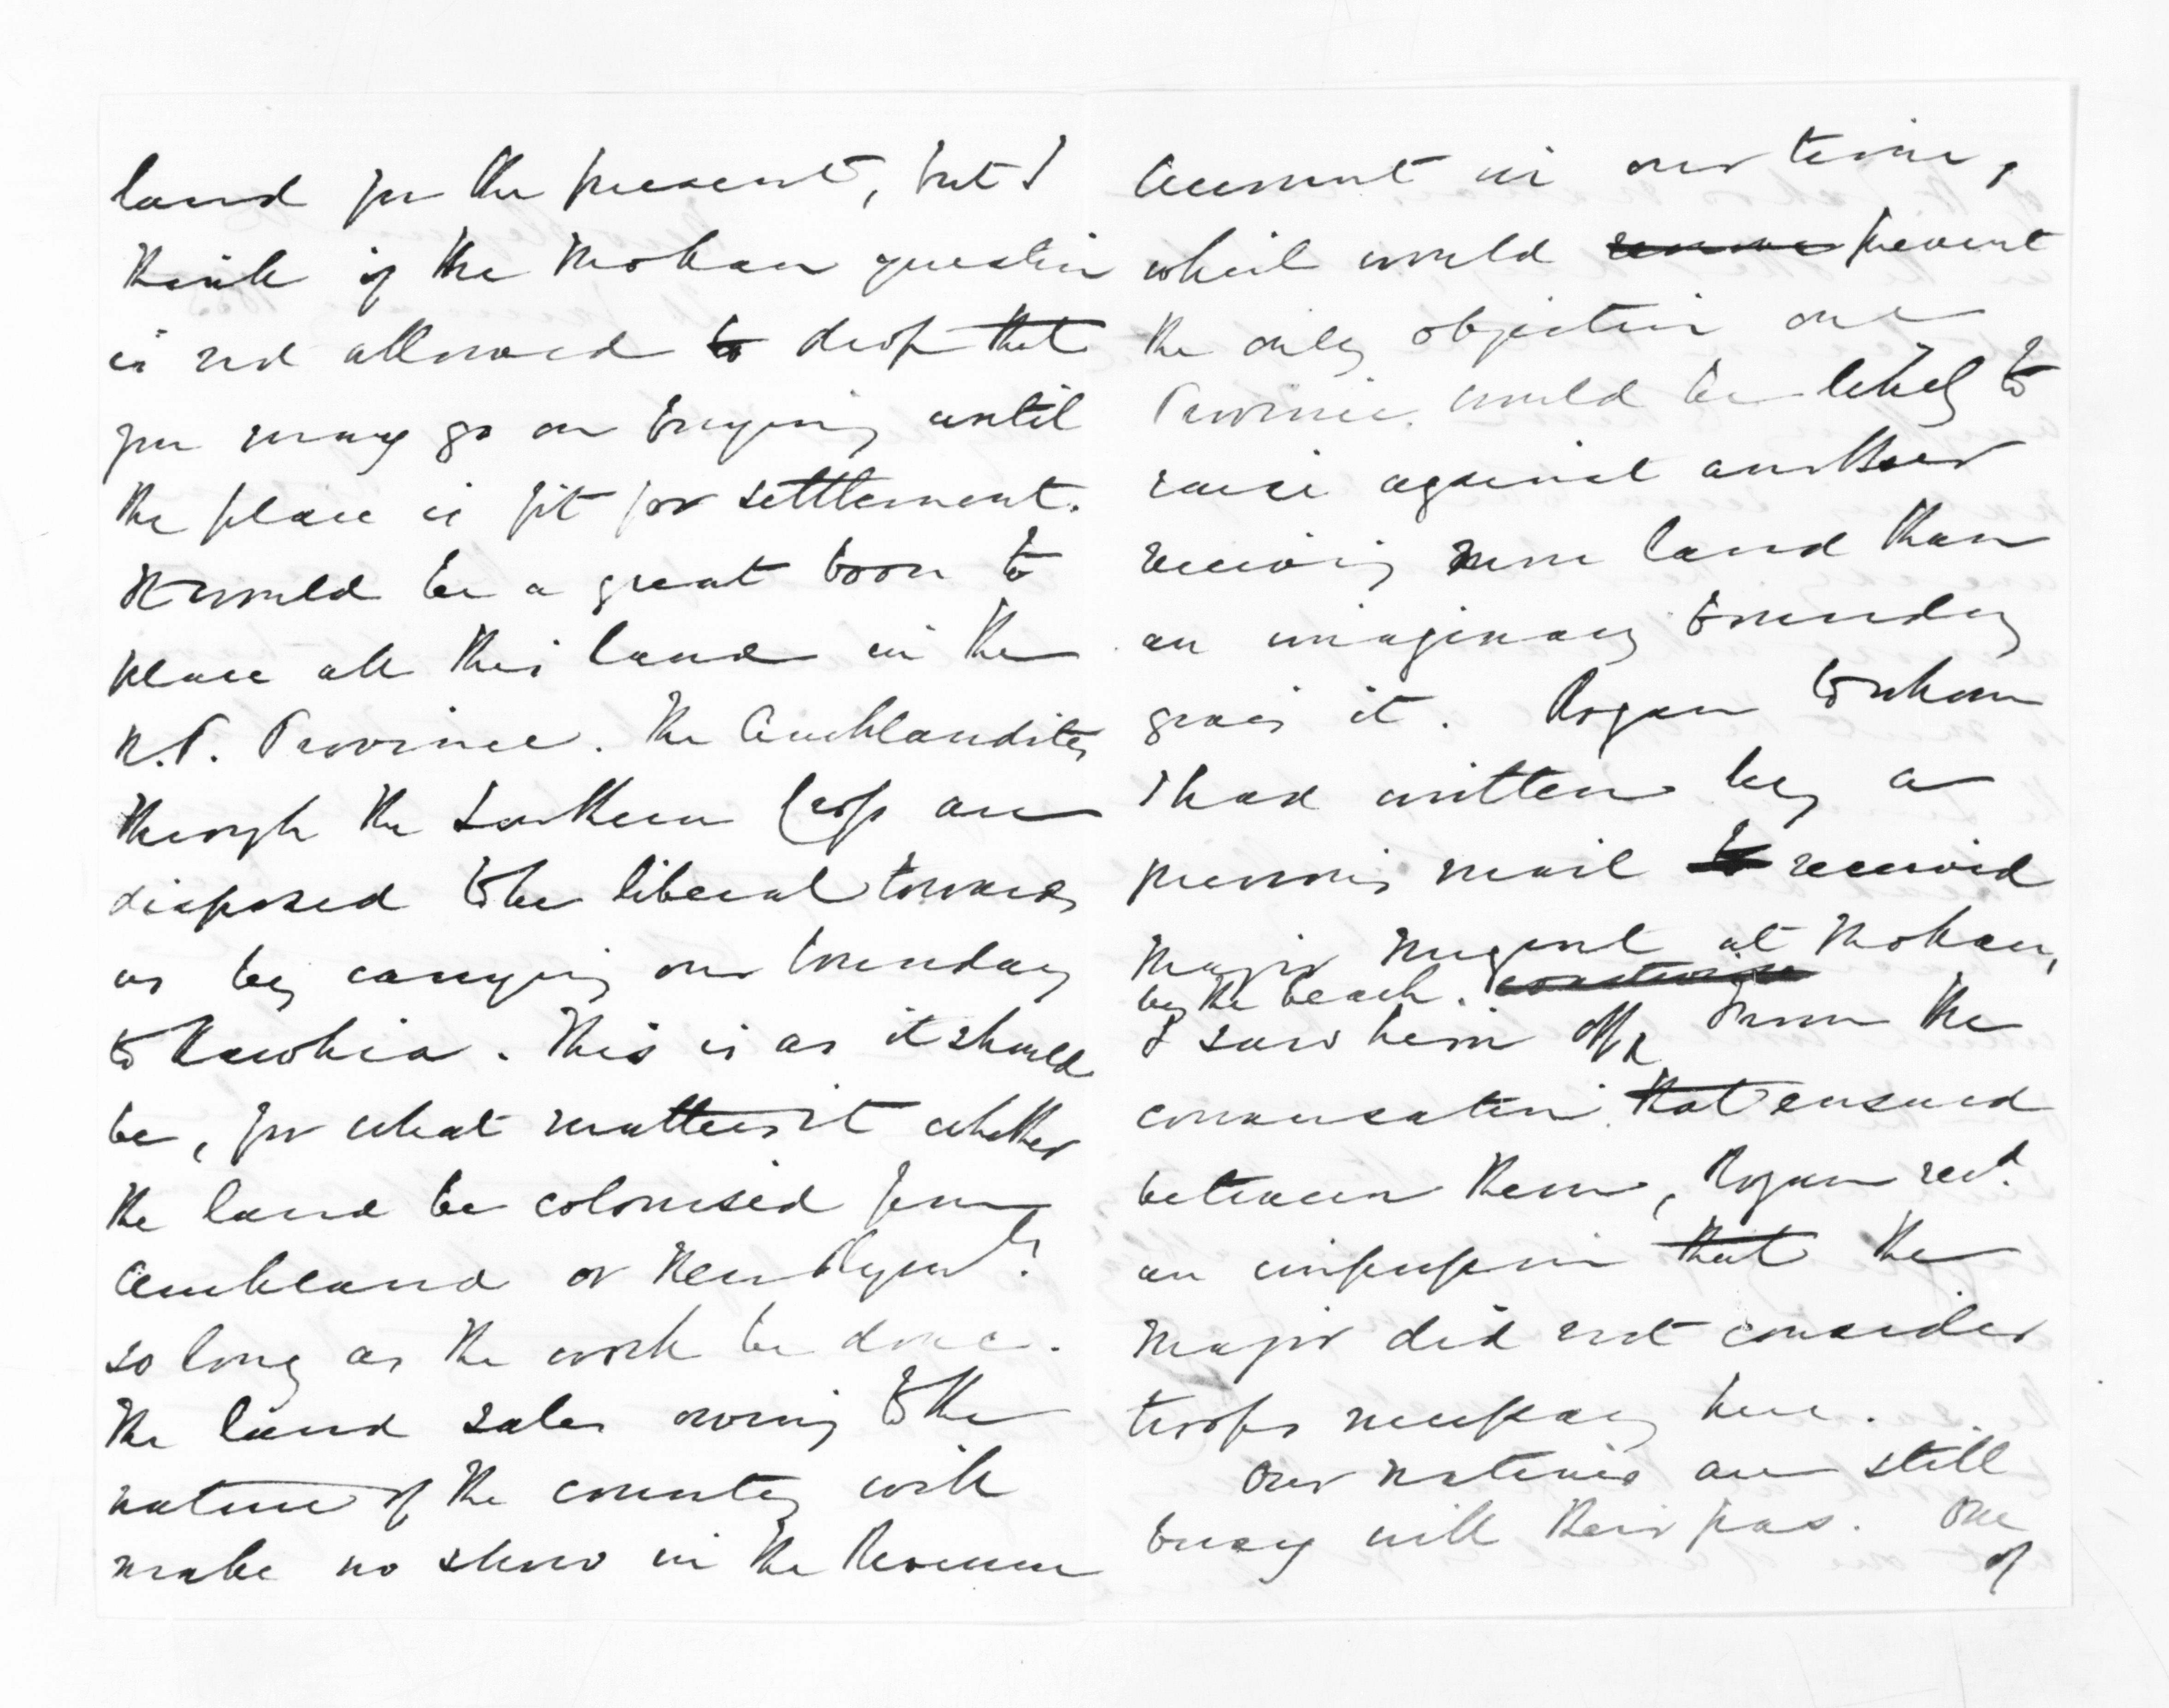 land for the present, but I
think if the Mokau question
is not allowed to drop that
you may go on buying until
the place is fit for settlement.
It would be a great boon to
place all this land in the
N.P. Province. The Aucklandites
through the Southern Cross are
disposed to be liberal towards
us by carrying our boundary
to Kawhia. This is as it should
be, for what matters it whether
the land be colonised from
Auckland or New Plymth?
so long as the work be done.
The land sales owing to the
nature of the country will
make no show in the Revenue
account in our time,
which would remove prevent
the only objection one
Province could be likely to
raise against another
receiving more land than
an imaginary boundary
gives it. Rogan to whom
I had written by a
previous mail to received
Major Nugent at Mokau,
by the beach. coastwise
I saw him off From the
conversation that ensued
between them, Rogan recd.
an impression that the
Major did not consider
troops necessary here.
Our natives are still
busy with their pas. One
of